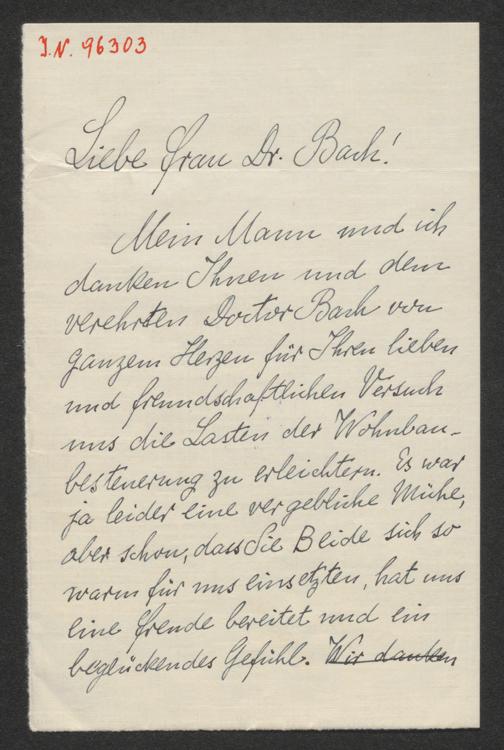 I.N. 96303
Liebe Frau Dr. Bach!
Mein Mann und ich
danken Ihnen und dem
verehrten Doctor Bach von
ganzem Herzen für Ihren lieben
und freundschaftlichen Versuch
uns die Lasten der Wohnbau-
besteuerung zu erleichtern. Es war
ja leider eine vergebliche Mühe,
aber schon, dass Sie Beide sich so
warm für uns einsetzten, hat uns
eine Freude bereitet und ein
beglückendes Gefühl. Wir danken